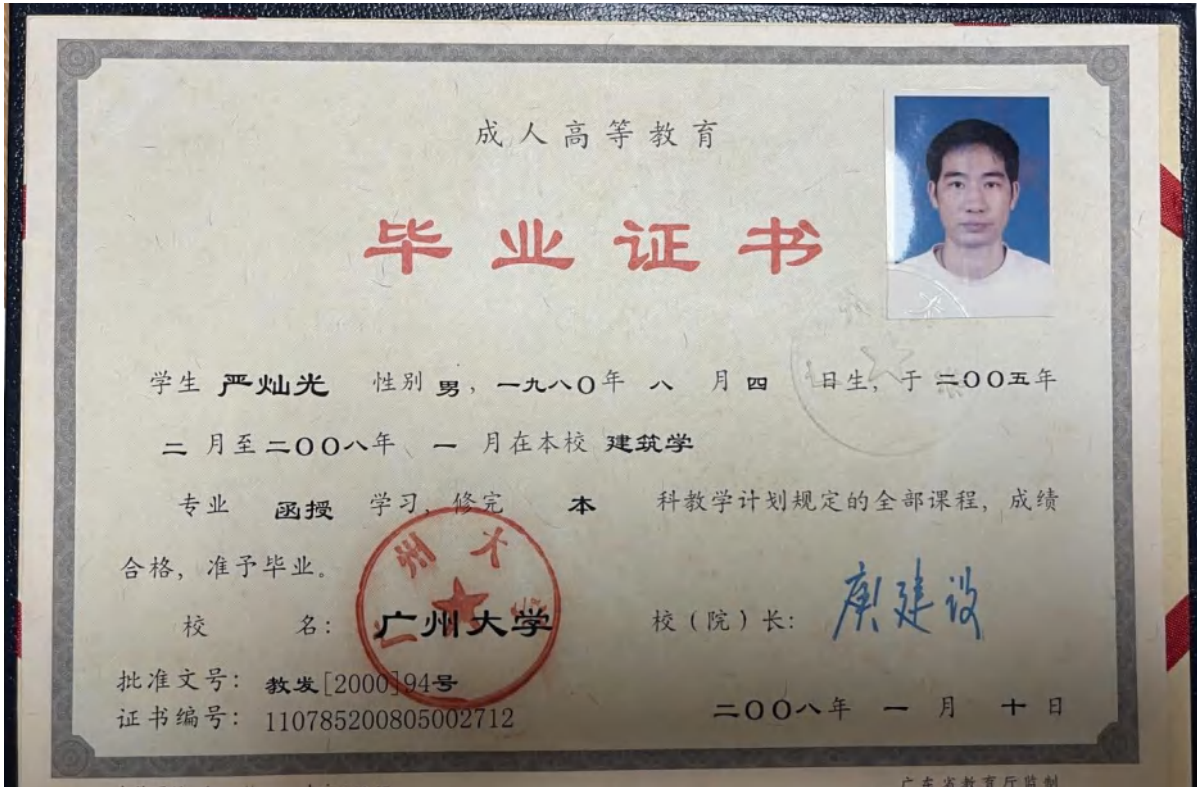 成人高等教育
毕业证书
学生 严灿光 性别 男，一九八〇年 八 月 四 日生，于 二〇〇五年
二 月至 二〇〇八年、 一 月在本校 建筑学
专业 函授 学习，修完 本 科教学计划规定的全部课程，成绩
合格，准予毕业。
校 名： 广州大学 校（院）长： 庾建设
批准文号： 教发[2000]94号
证书编号： 110785200805002712 二〇〇八年 一 月 十 日
广东省教育厅监制